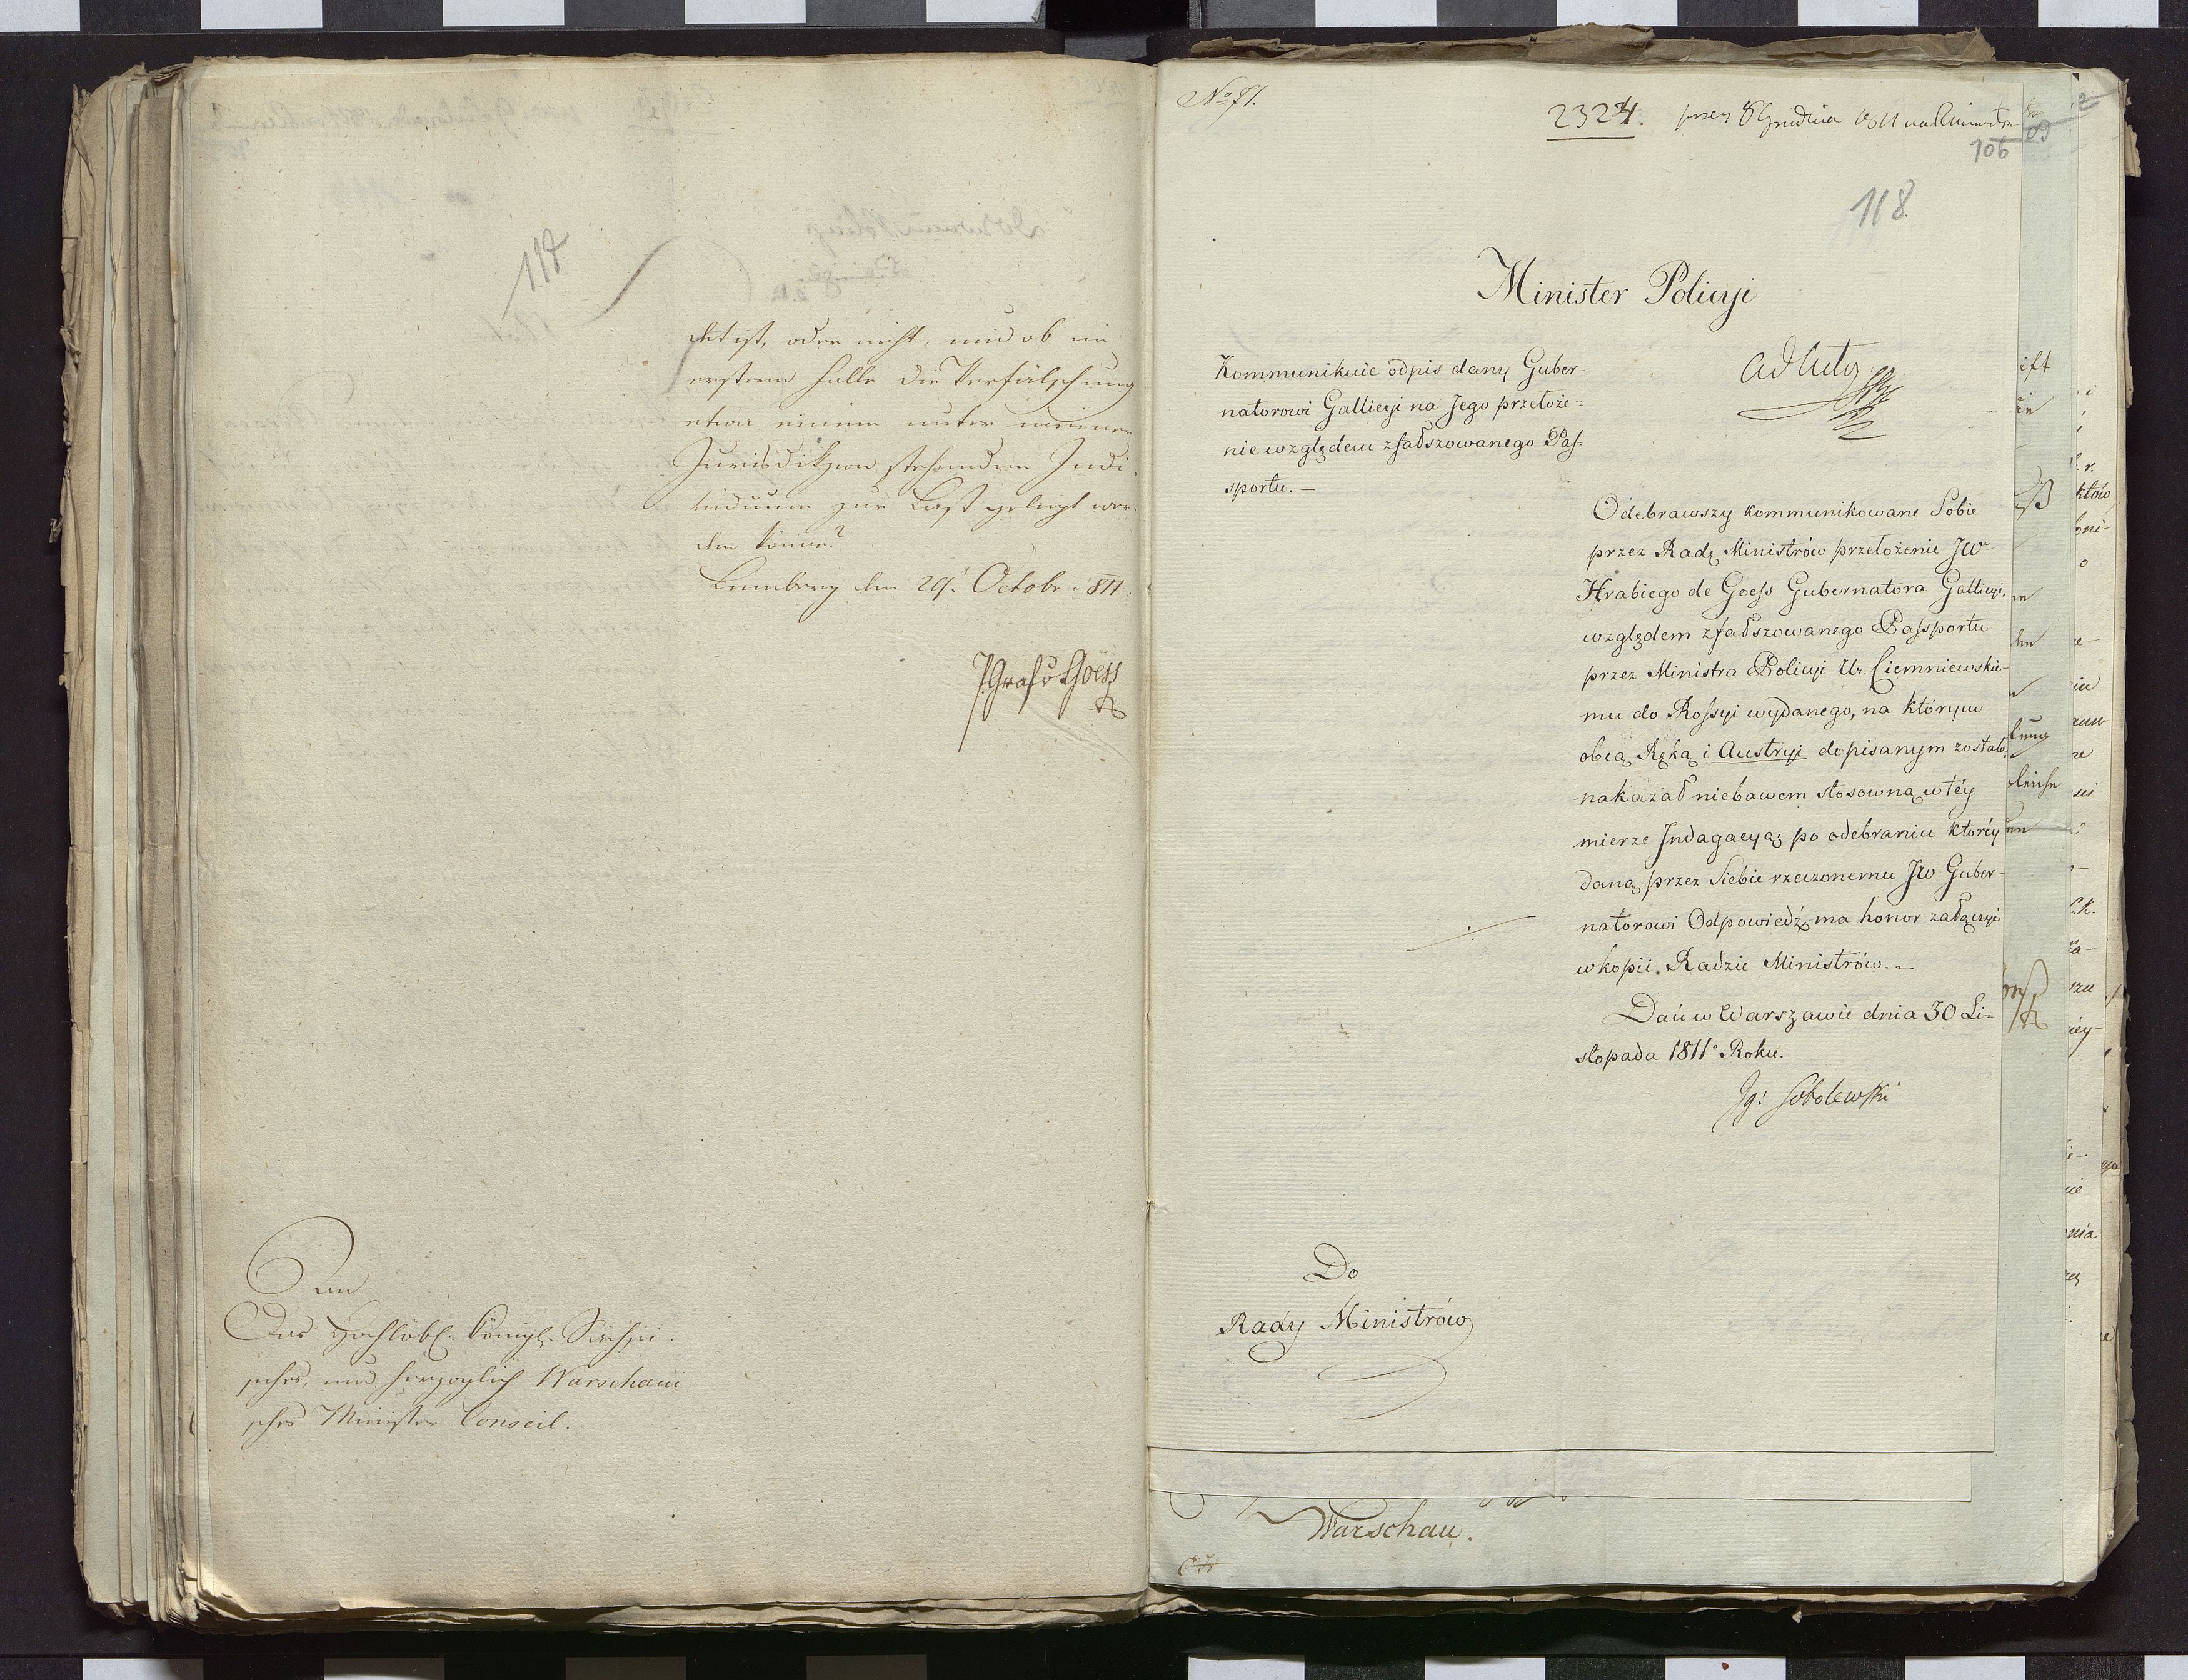 117
det ist, oder nicht, und ob im
ersteren Falle die Verfälschung
etwa einem unter meiner
Jurisdikzion stehenden Indi
viduum zur Last gelegt wer-
den könne?
Lemberg den 29t. Octobr 811.
J. Graf v Goëss
An
Das Hochlöbl. königl. Sächsi
sches, und herzoglich Warschaui
sches Minister Conseil.
No 71.
2324. prez 8 Grudnia 1811
106
118
Minister Policyi
Kommunikuie odpis dany Guber-
natorowi Gallicyi na Jego przełoże-
nie względem zfałszowanego Pas-
sportu.—
ad acta
Odebrawszy kommunikowane Sobie
przez Radę Ministrów przełożenie JW
Hrabiego de Goess Gubernatora Gallicyi,
względem zfałszowanego Passportu
przez Ministra Policyi Ur. Ciemniewskie-
mu do Rossyi wydanego, na którym
obcą Ręką i Austryi dopisanym zostało:
nakazał niebawem stosowną w téy
mierze Indagacyą; po odebraniu któréy
daną przez Siebie rzeczonemu JW Guber-
natorowi Odpowiedź ma honor załączyć
w kopii Radzie Ministrów.—
Dan w Warszawie dnia 30 Li-
stopada 1811o Roku.
Ig: Sobolewski
Do
Rady Ministrów
Warschau.